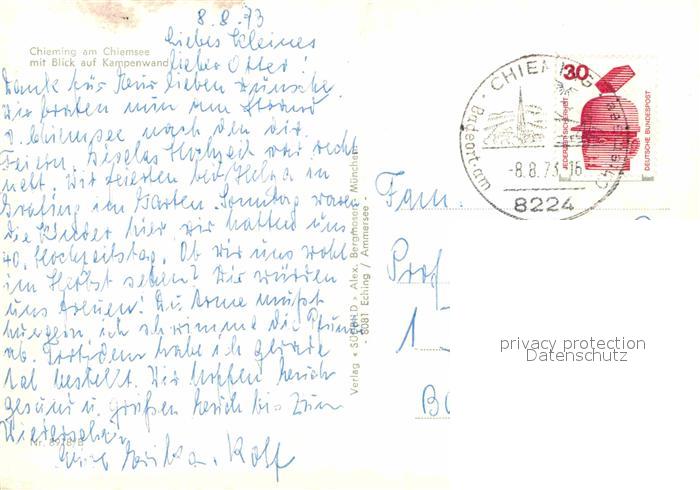 8.8.73
Chieming am Chiemsee
mit Blick auf Kampenwand
Liebes Kleines
lieber Otter!
Dank für Eure lieben Wünsche.
Wir braten nun am Strand
d. Chiemsee nach den div.
Feiern. Giselas Hochzeit war recht
nett. Wir feierten bei Helga in
im Garten. Sonntag waren
die Kinder hier wir hatten uns
40. Hochzeitstag. Ob wir uns wohl
im Herbst sehen? Wir würden
uns freuen! Du Arme mußt
hungern, ich schwimme die Pfunde
ab. Trotzdem habe ich gerade
bestellt. Wir hoffen Euch
gesund u. grüßen Euch bis zum
Wiedersehen
Nr. 8928 B
Eure Erika u. Rolf
Verlag « SÜDBILD » Alex. Bergmoser, München
- 8081 Eching / Ammersee -
CHIEMING
Badeort am Chiemsee
-8.8.73-16
8224
30
JEDERZEIT SICHERHEIT
DEUTSCHE BUNDESPOST
Fam.
Prof
1
privacy protection
Datenschutz